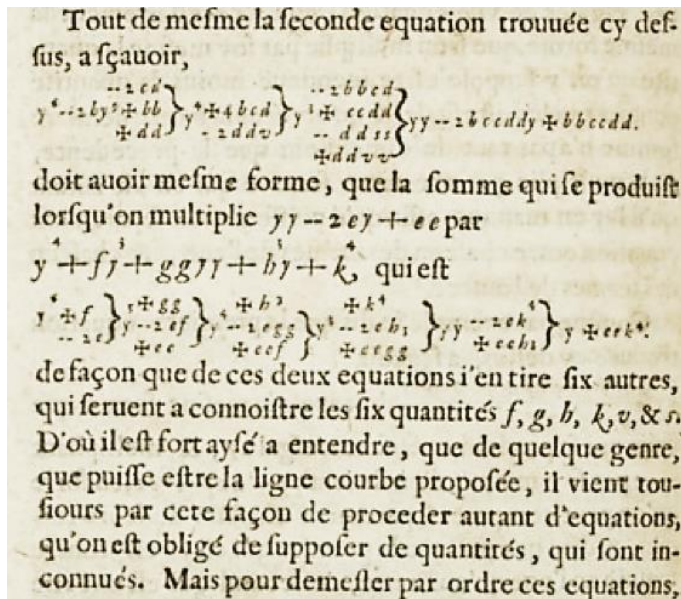 Tout de meſme la ſeconde equation trouuée cy deſ-
ſus, a ſçauoir,
-- 2 cd -- 2 b b c d
y⁶ -- 2 b y⁵ ✠ b b } y⁴ ✠ 4 b c d } y³ ✠ c c d d } y y -- 2 b c c d d y ✠ b b c c d d.
✠ d d -- 2 d d v -- d d s s
✠ d d v v
doit auoir meſme forme, que la ſomme qui ſe produiſt
lorſqu'on multiplie y y -- 2 e y + e e par
y⁴ + f y³ + g g y y + h³ y + k⁴, qui eſt
✠ g g ✠ h³ ✠ k⁴
y⁶ ✠ f } y⁵ -- 2 e f } y⁴ -- 2 e g g } y³ -- 2 e h³ } y y -- 2 e k⁴ } y ✠ e e k⁴.
-- 2 e ✠ e e ✠ e e f ✠ e e g g ✠ e e h³
de façon que de ces deux equations i'en tire ſix autres,
qui ſeruent a connoiſtre les ſix quantités f, g, h, k, v, & s.
D'où il eſt fort ayſé a entendre, que de quelque genre,
que puiſſe eſtre la ligne courbe propoſée, il vient touſ-
ſiours par cete façon de proceder autant d'equations,
qu'on eſt obligé de ſuppoſer de quantités, qui ſont in-
connuës. Mais pour demeſler par ordre ces equations,